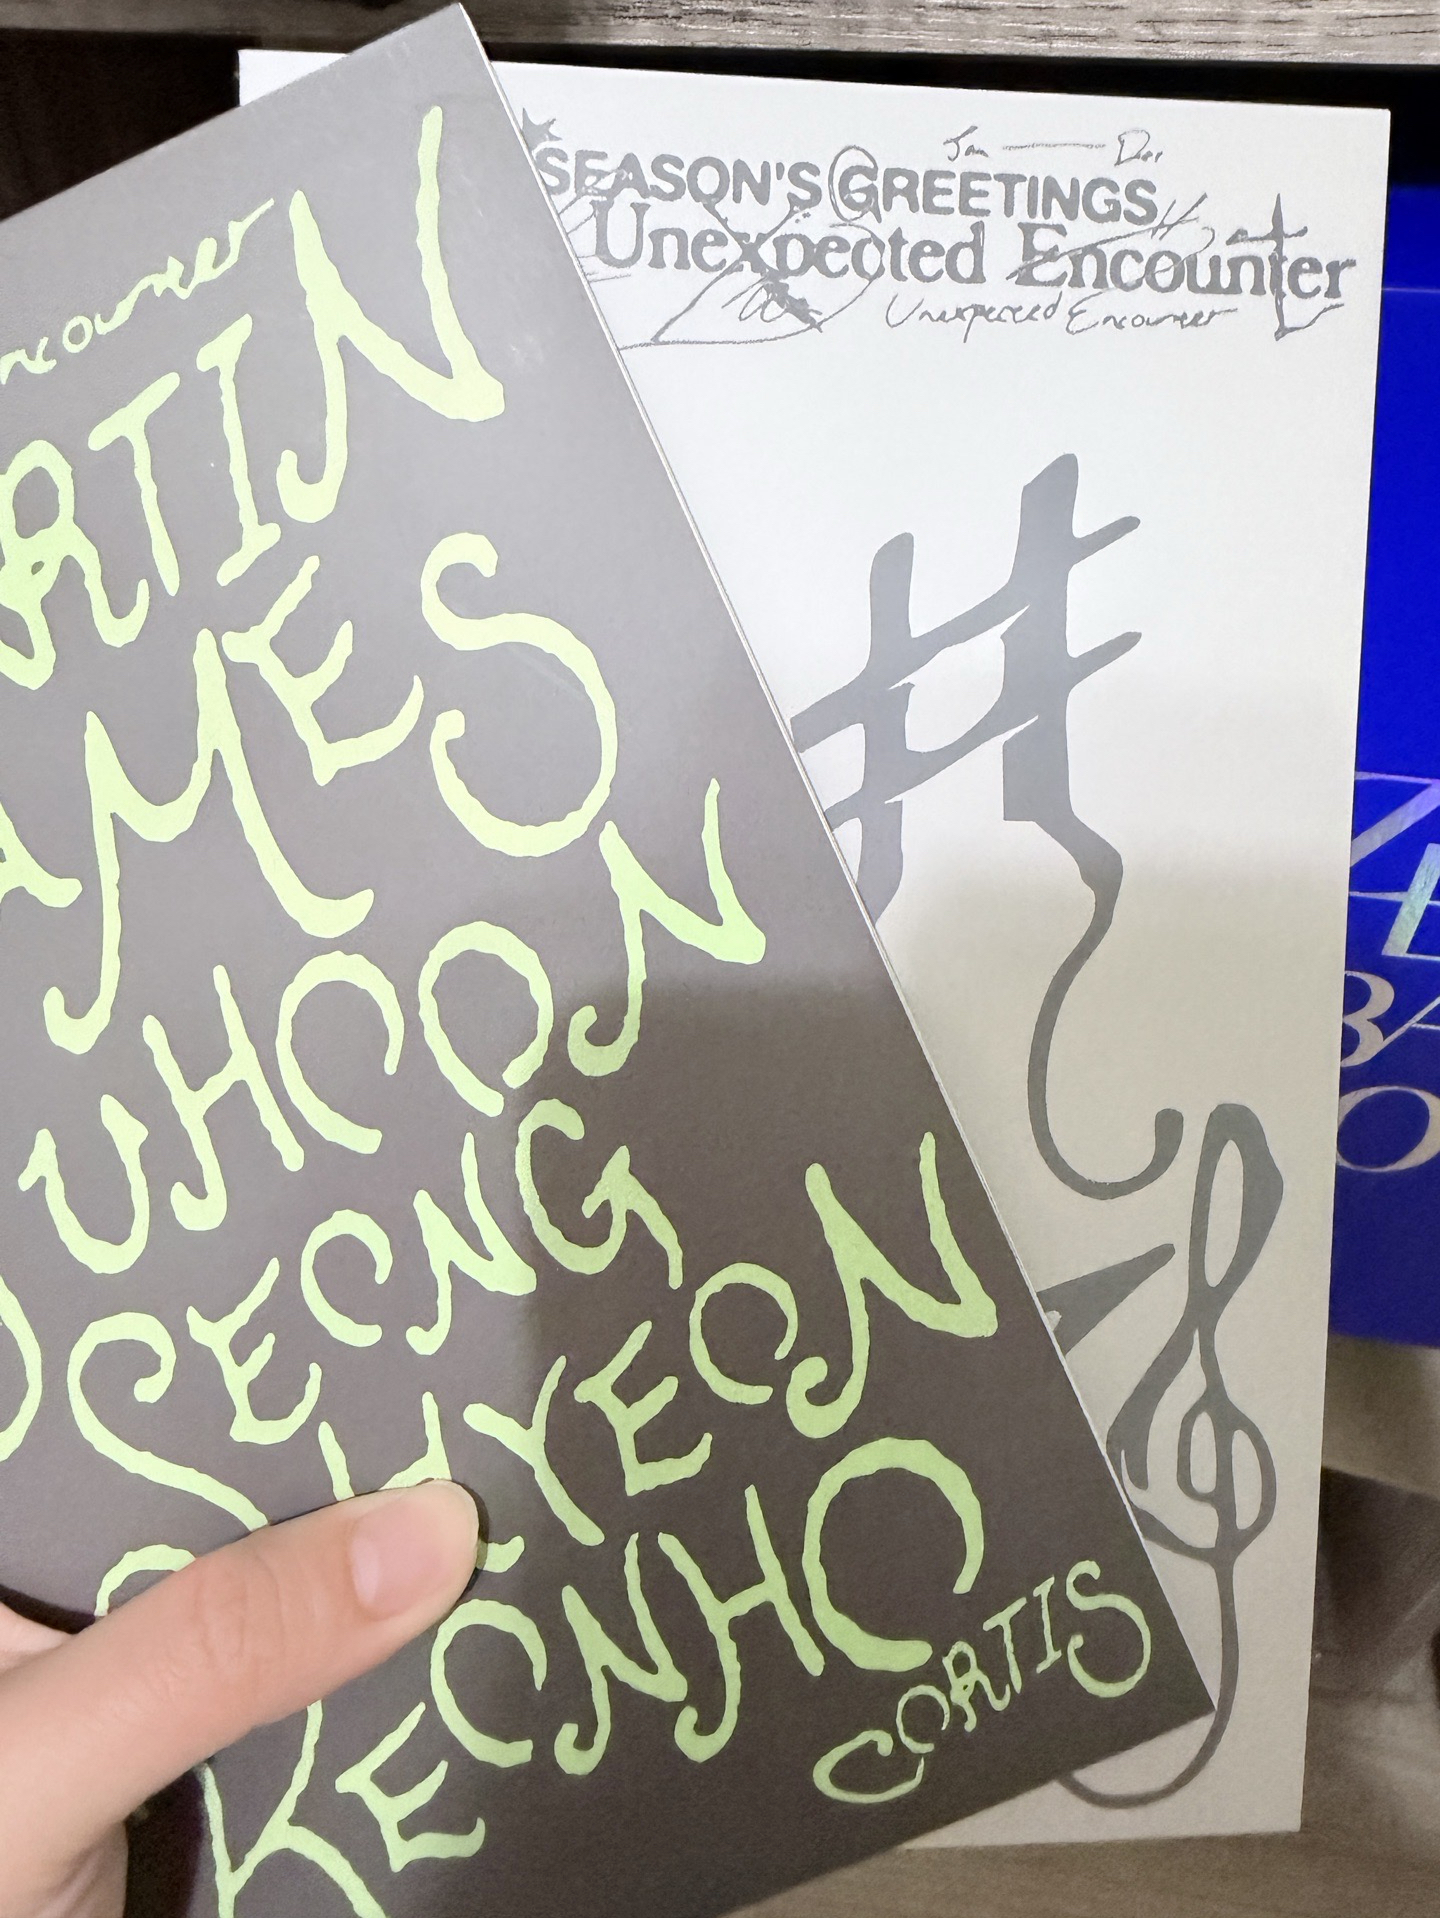 ncounter
RTIN
AMES
JUHOON
SEONG
HYEON
KEONHO
CORTIS
Jan — Dec
SEASON'S GREETINGS
Unexpected Encounter
Unexpected Encounter
ZE
BA
O